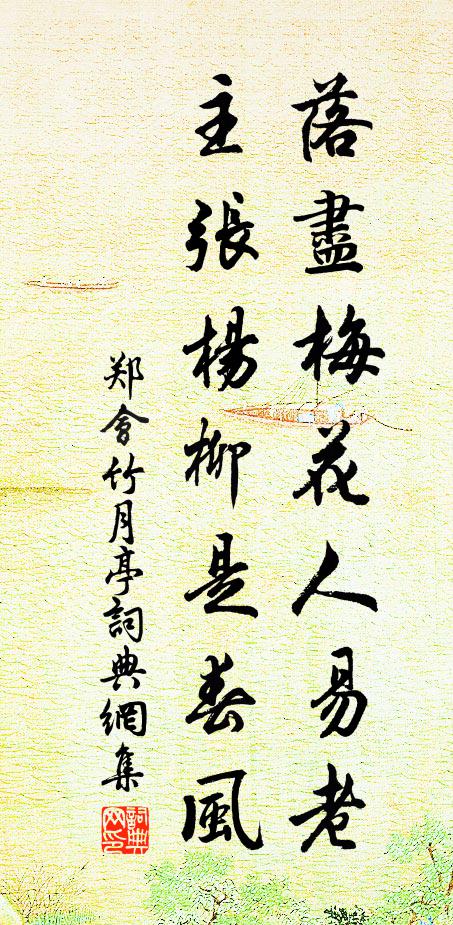 落盡梅花人易老
主張楊柳是春風
郑會竹月亭詞典網集
詞典网印